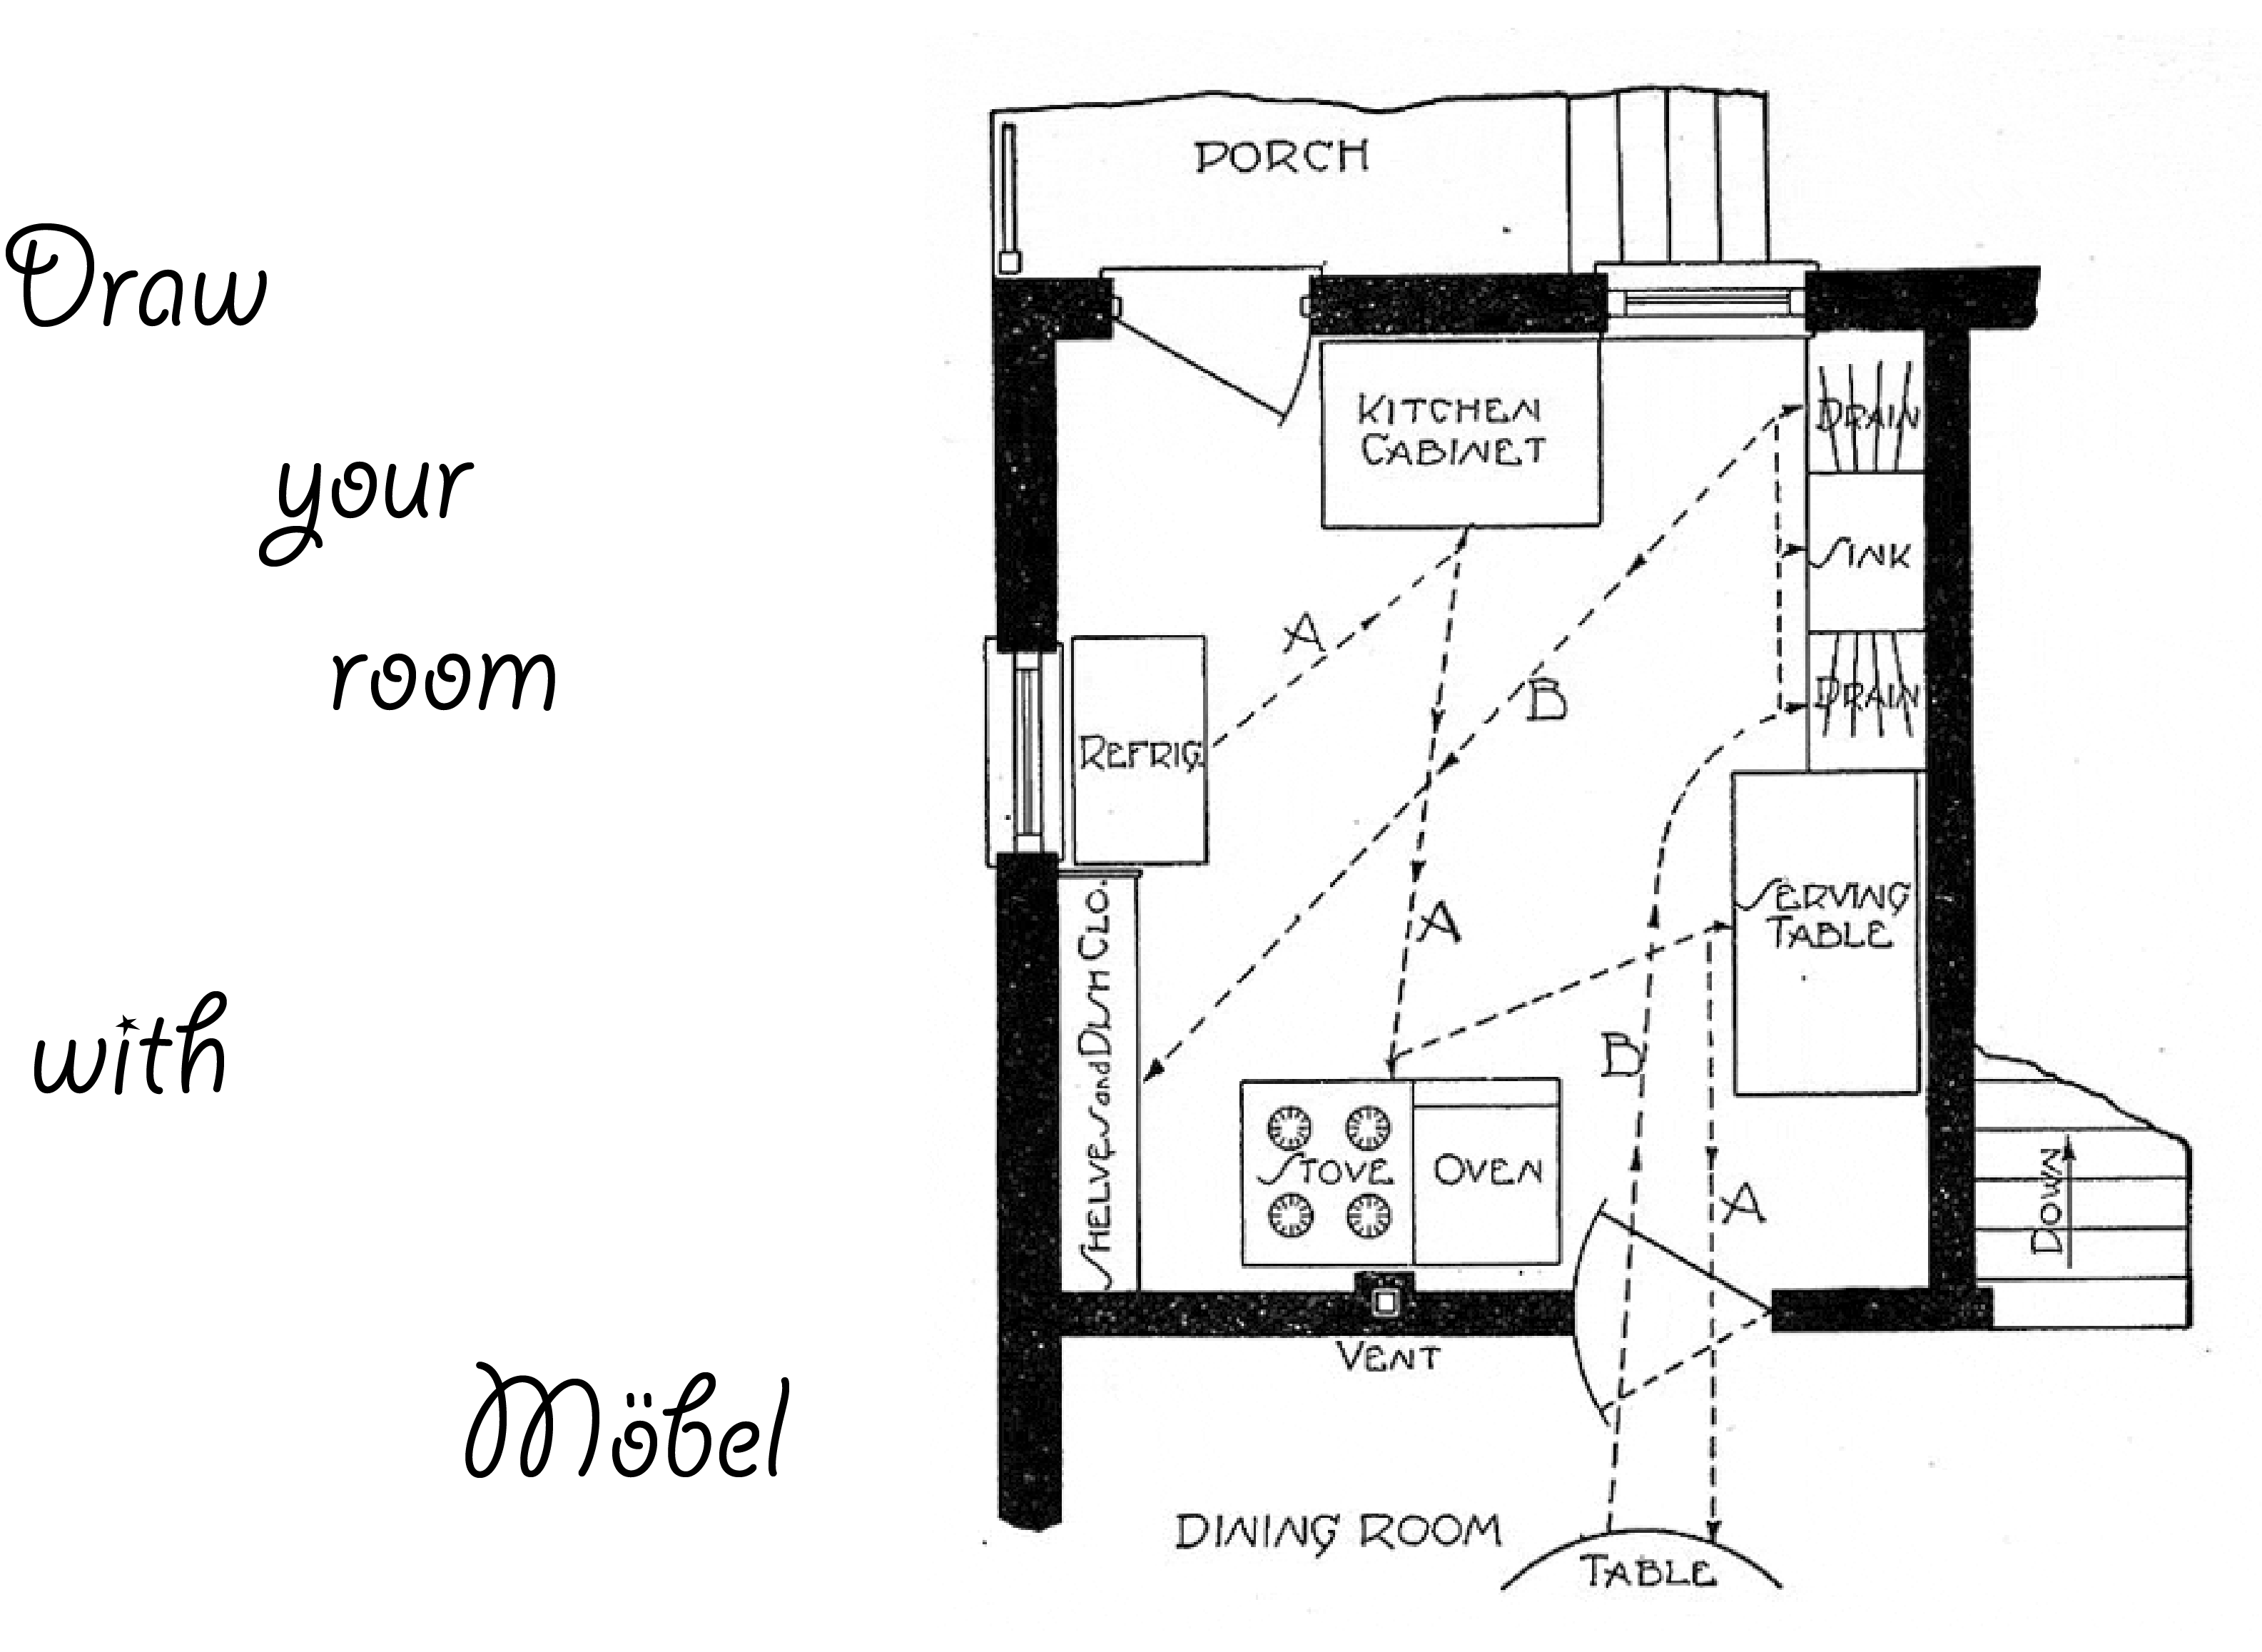 Draw
your
room
with
Möbel
PORCH
KITCHEN
CABINET
DRAIN
SINK
DRAIN
A
B
REFRIG
SERVING
TABLE
A
SHELVES and DISH CLO.
B
STOVE
OVEN
A
DOWN
VENT
DINING ROOM
TABLE